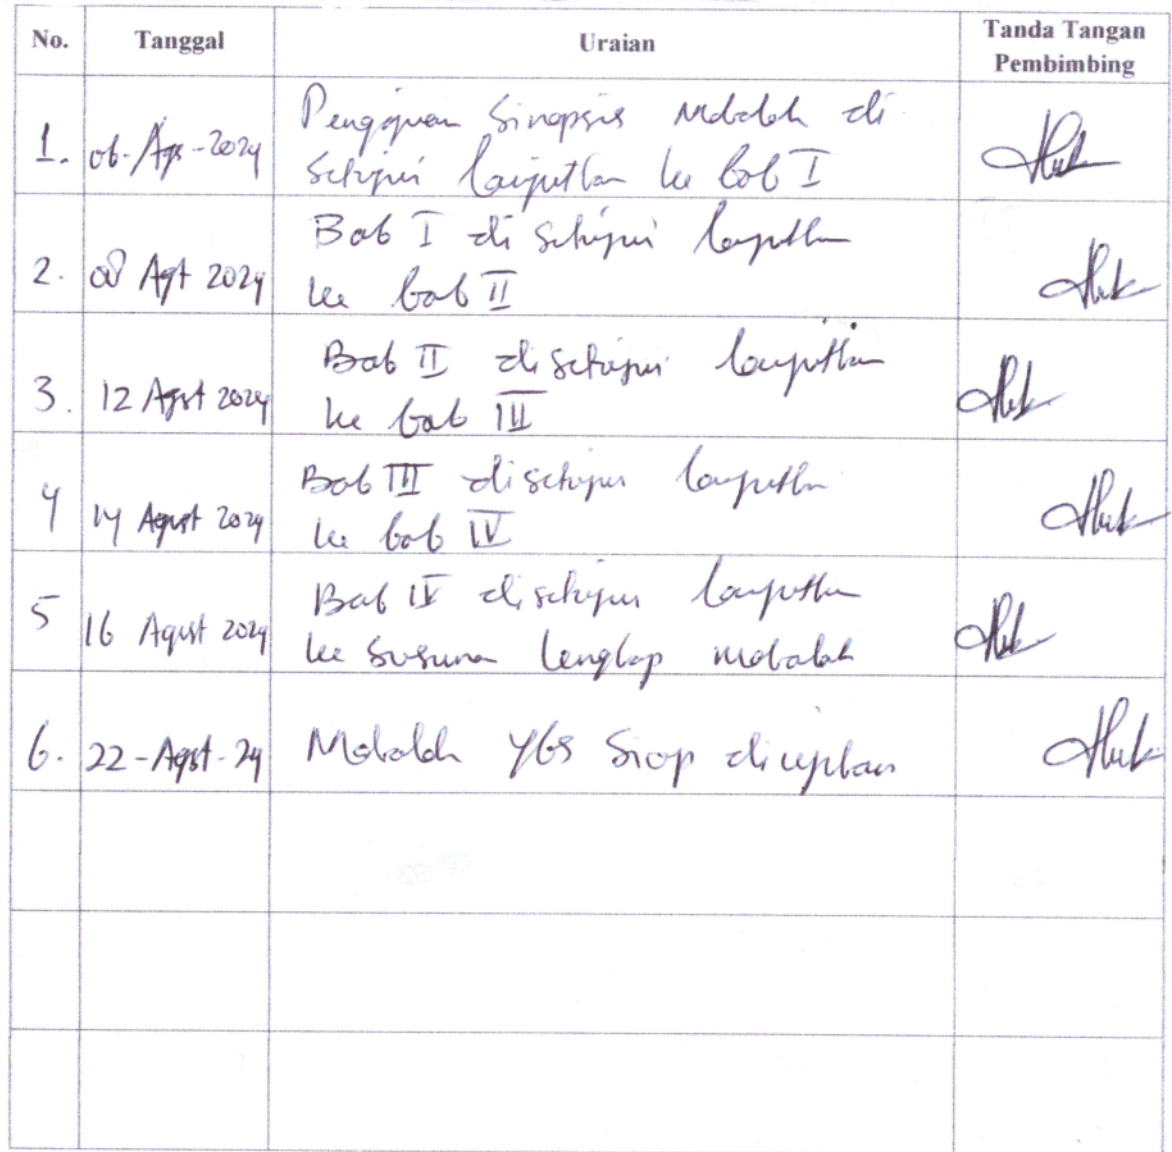 No. Tanggal Uraian Tanda Tangan
Pembimbing
1. 06-Ags-2024 Pengajuan Sinopsis Makalah di
Setujui lanjutkan ke bab I
2. 08 Agt 2024 Bab I di Setujui lanjutkan
ke bab II
3. 12 Agst 2024 Bab II disetujui lanjutkan
ke bab III
4 14 Agust 2024 Bab III disetujui lanjutkan
ke bab IV
5 16 Agust 2024 Bab IV disetujui lanjutkan
ke susunan lengkap makalah
6. 22-Agst-24 Makalah Siap diujikan